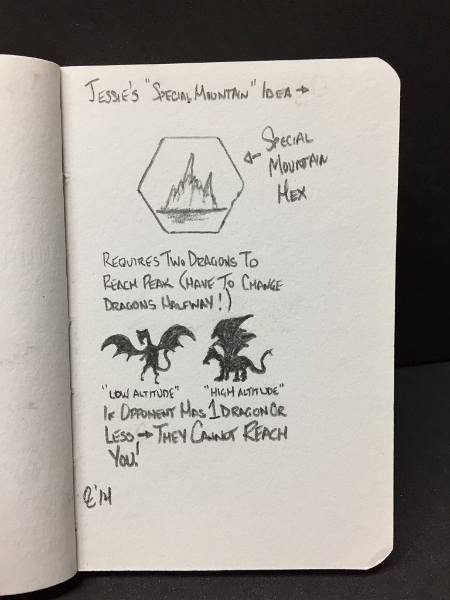 JESSIE'S "SPECIAL MOUNTAIN" IDEA →
← SPECIAL
MOUNTAIN
HEX
REQUIRES TWO DRAGONS TO
REACH PEAK (HAVE TO CHANGE
DRAGONS HALFWAY!)
"LOW ALTITUDE" "HIGH ALTITUDE"
IF OPPONENT HAS 1 DRAGON OR
LESS → THEY CANNOT REACH
YOU!